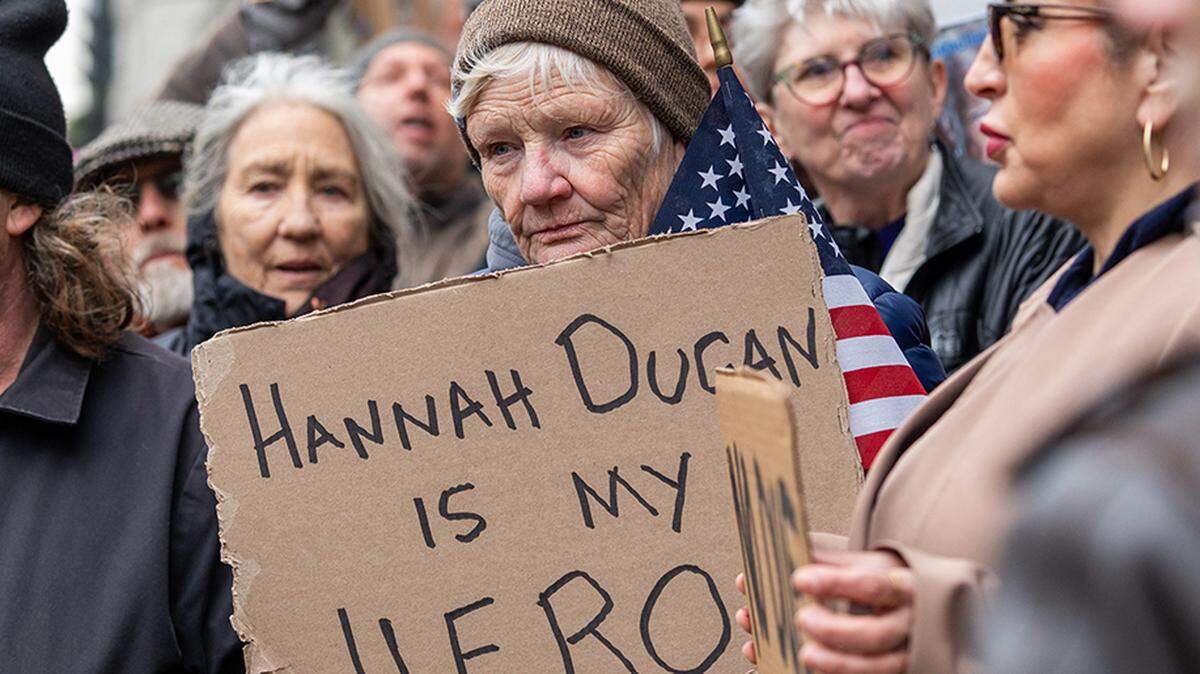 HANNAH DUGAN
IS MY
HERO